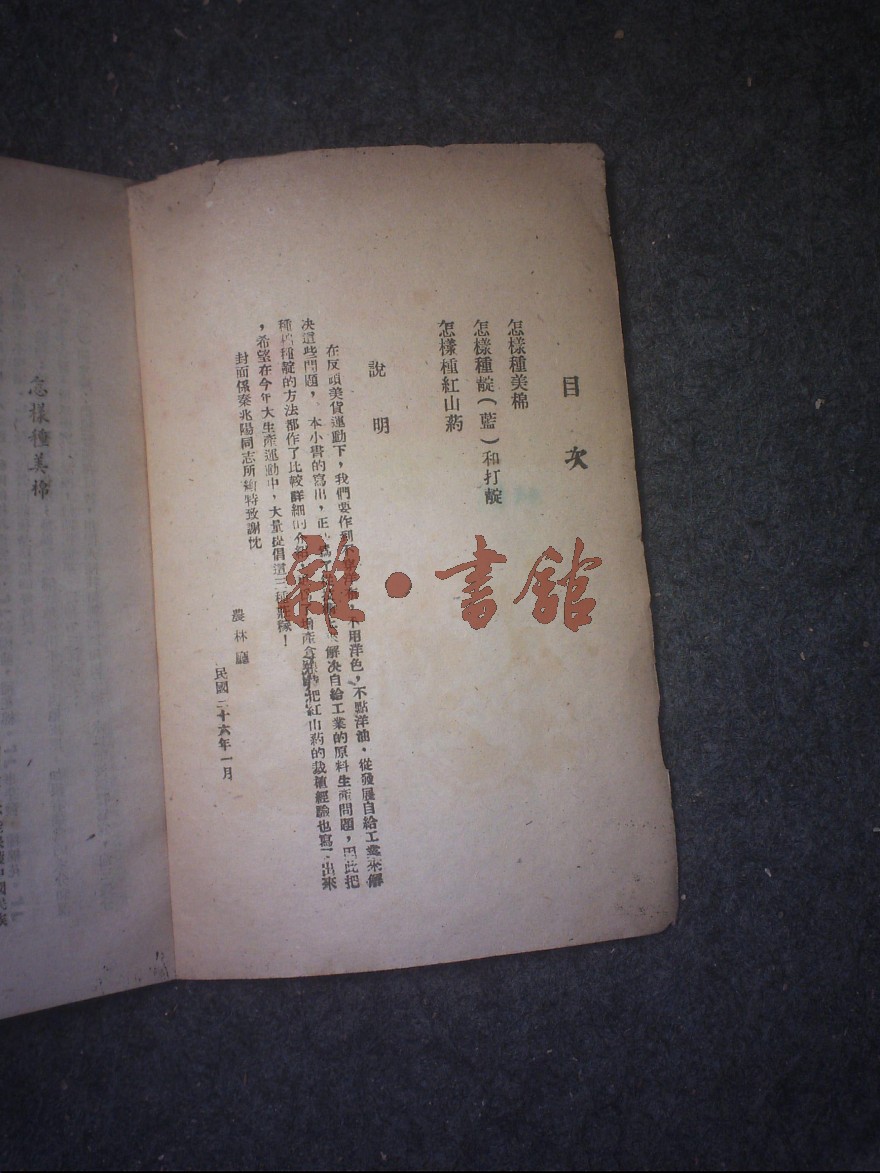 目次
怎樣種美棉
怎樣種靛(藍)和打靛
怎樣種紅山葯
說明
在反頭美貨運動下,我們要作到不 不用洋色,不點洋油,從發展自給工業來解
决這些問題,本小書的寫出,正 解决自給工業的原料生產問題,因此把
種棉種靛的方法都作了比較詳細的介紹 增產 把紅山葯的栽植經驗也寫了出來
,希望在今年大生產運動中,大量從倡這三種庄稼!
封面係秦兆陽同志所繪特致謝忱
農林廳
民國二十六年一月
雜·書館
怎樣種美棉